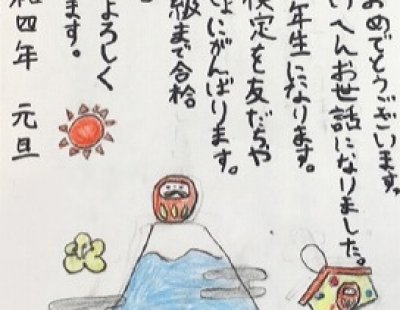 おめでとうございます。
けへんお世話になりました。
年生になります。
検定を友だちや
よにがんばります。
級まで合格
よろしく
ます。
和四年 元旦